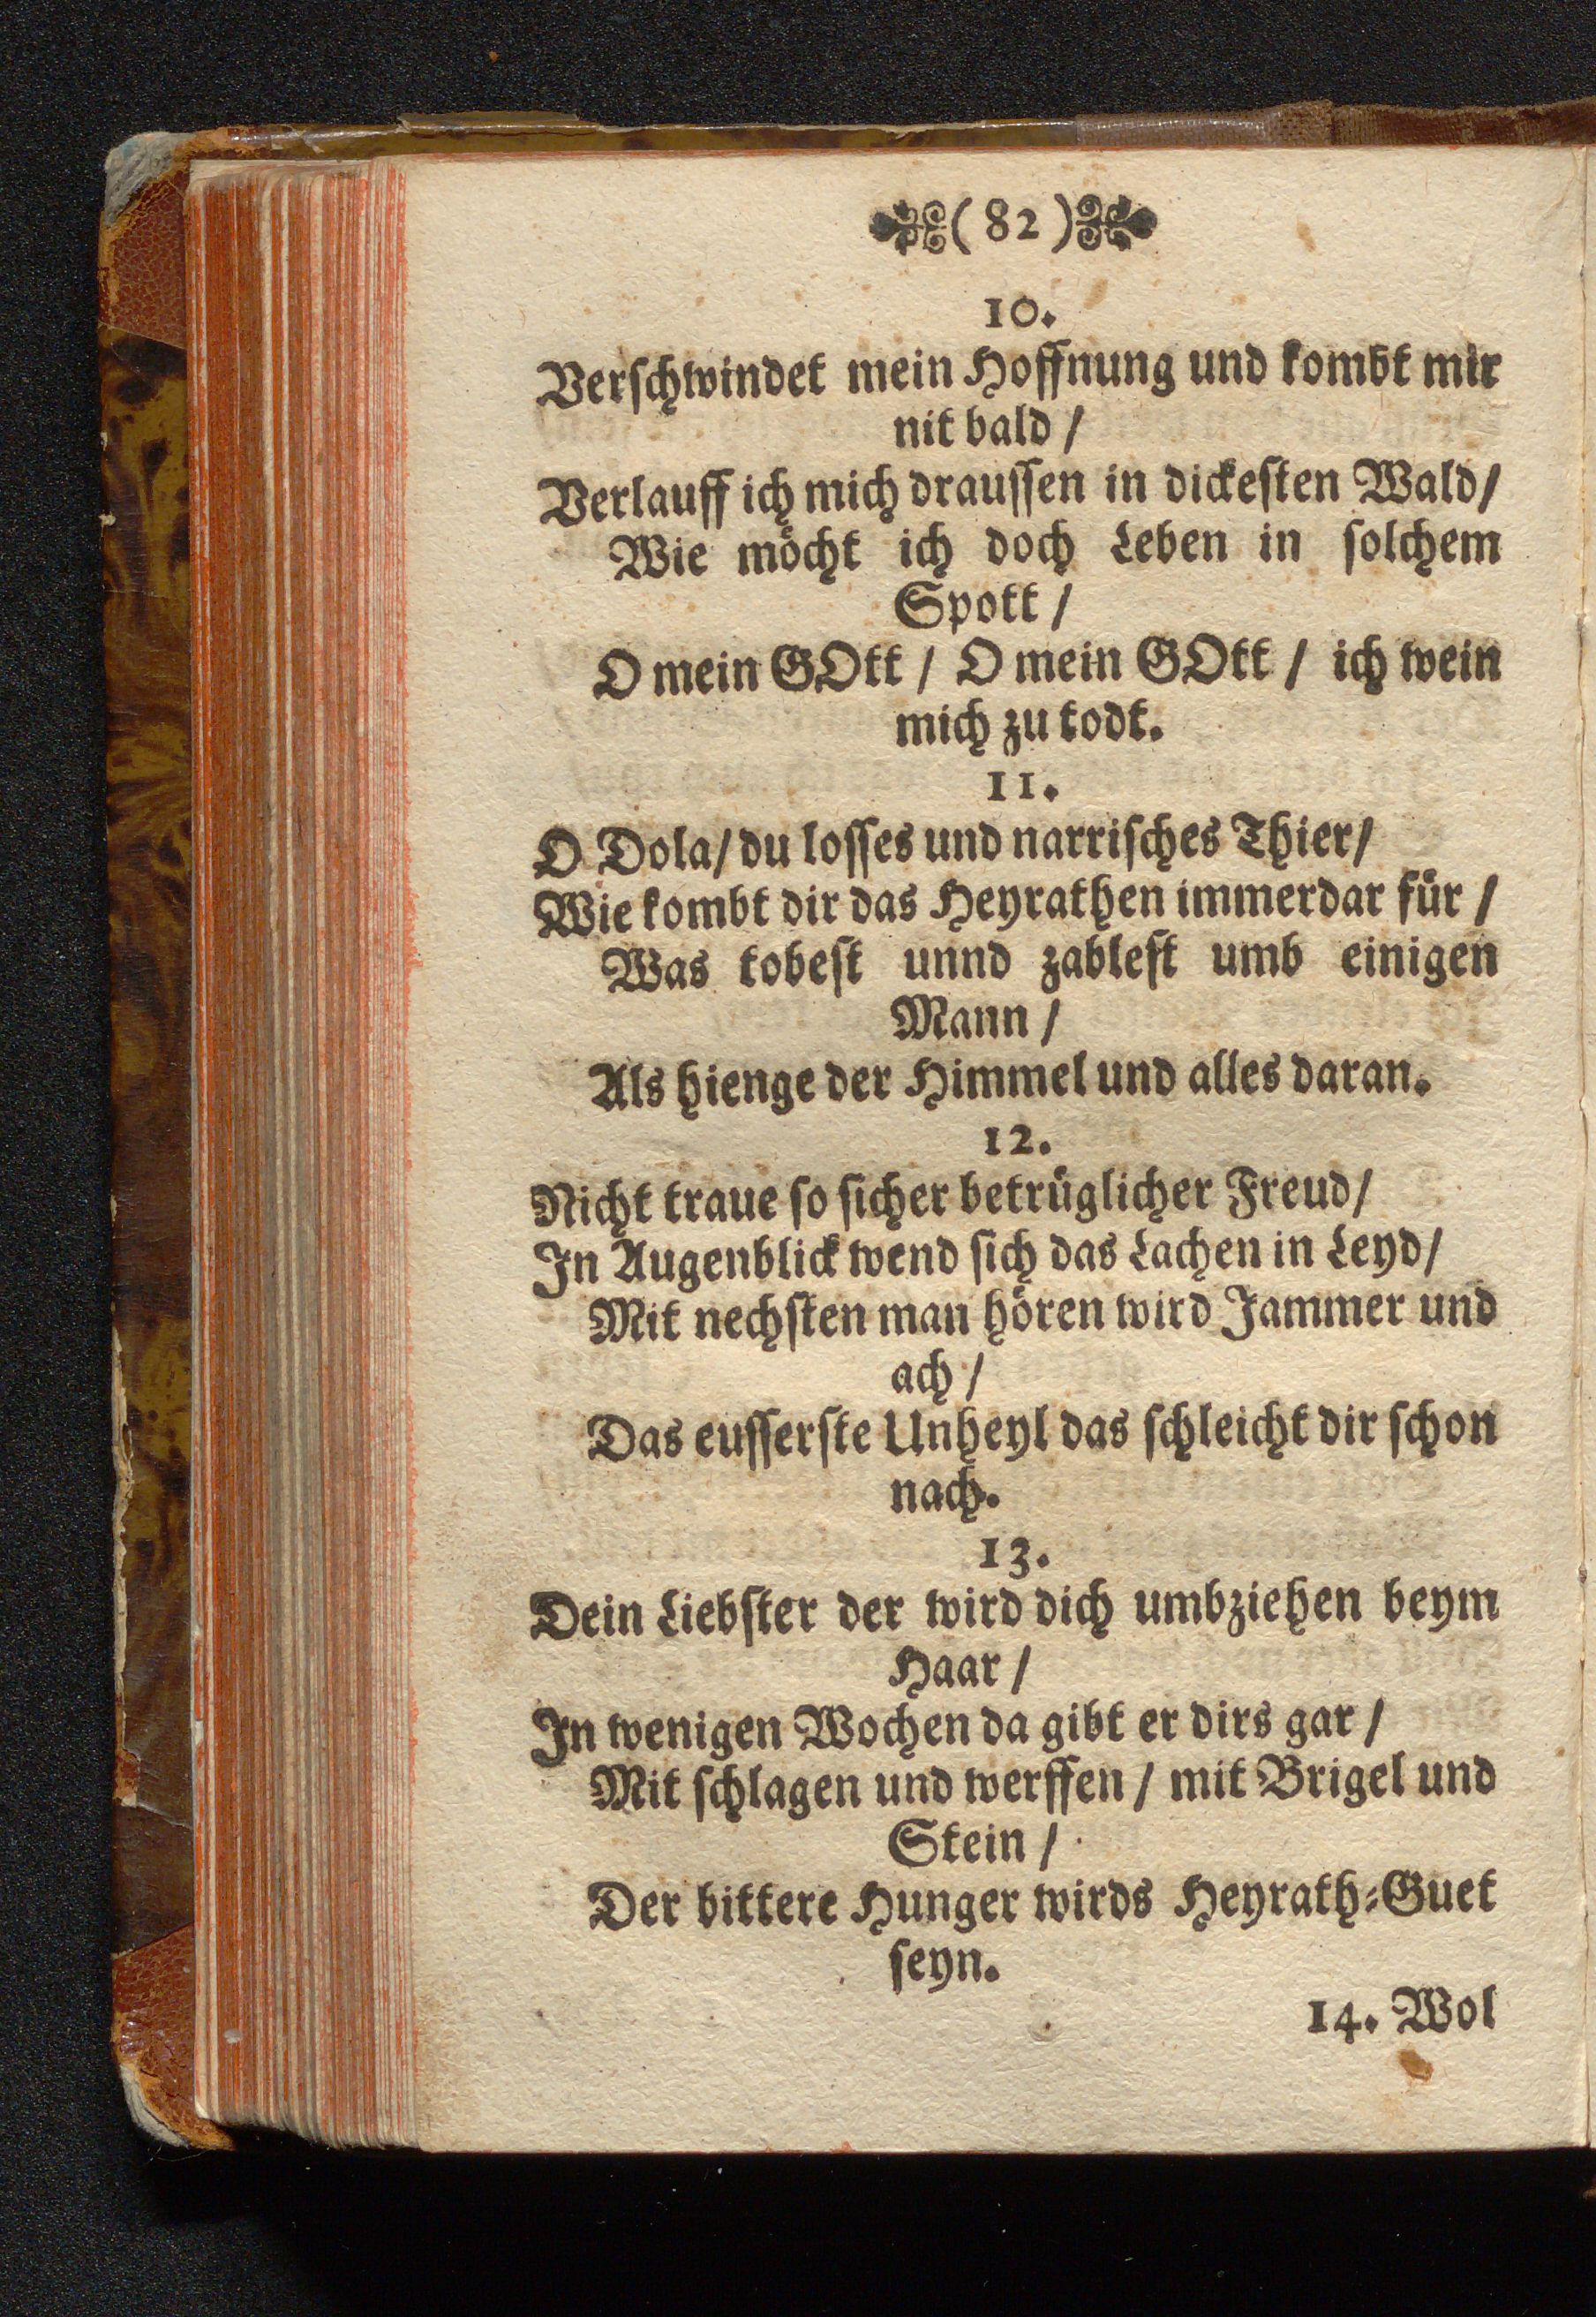 ( 82 )
10.
Verſchwindet mein Hoffnung und kombt mir
nit bald /
Verlauff ich mich drauſſen in dickeſten Wald /
Wie möcht ich doch Leben in ſolchem
Spott /
O mein GOtt / O mein GOtt / ich wein
mich zu todt.
11.
O Dola / du loſſes und narriſches Thier /
Wie kombt dir das Heyrathen immerdar für /
Was tobeſt unnd zableſt umb einigen
Mann /
Als hienge der Himmel und alles daran.
12.
Nicht traue ſo ſicher betrüglicher Freud /
In Augenblick wend ſich das Lachen in Leyd /
Mit nechſten man hören wird Jammer und
ach /
Das euſſerſte Unheyl das ſchleicht dir ſchon
nach.
13.
Dein Liebſter der wird dich umbziehen beym
Haar /
In wenigen Wochen da gibt er dirs gar /
Mit ſchlagen und werffen / mit Brigel und
Stein /
Der bittere Hunger wirds Heyrath-Guet
ſeyn.
14. Wol